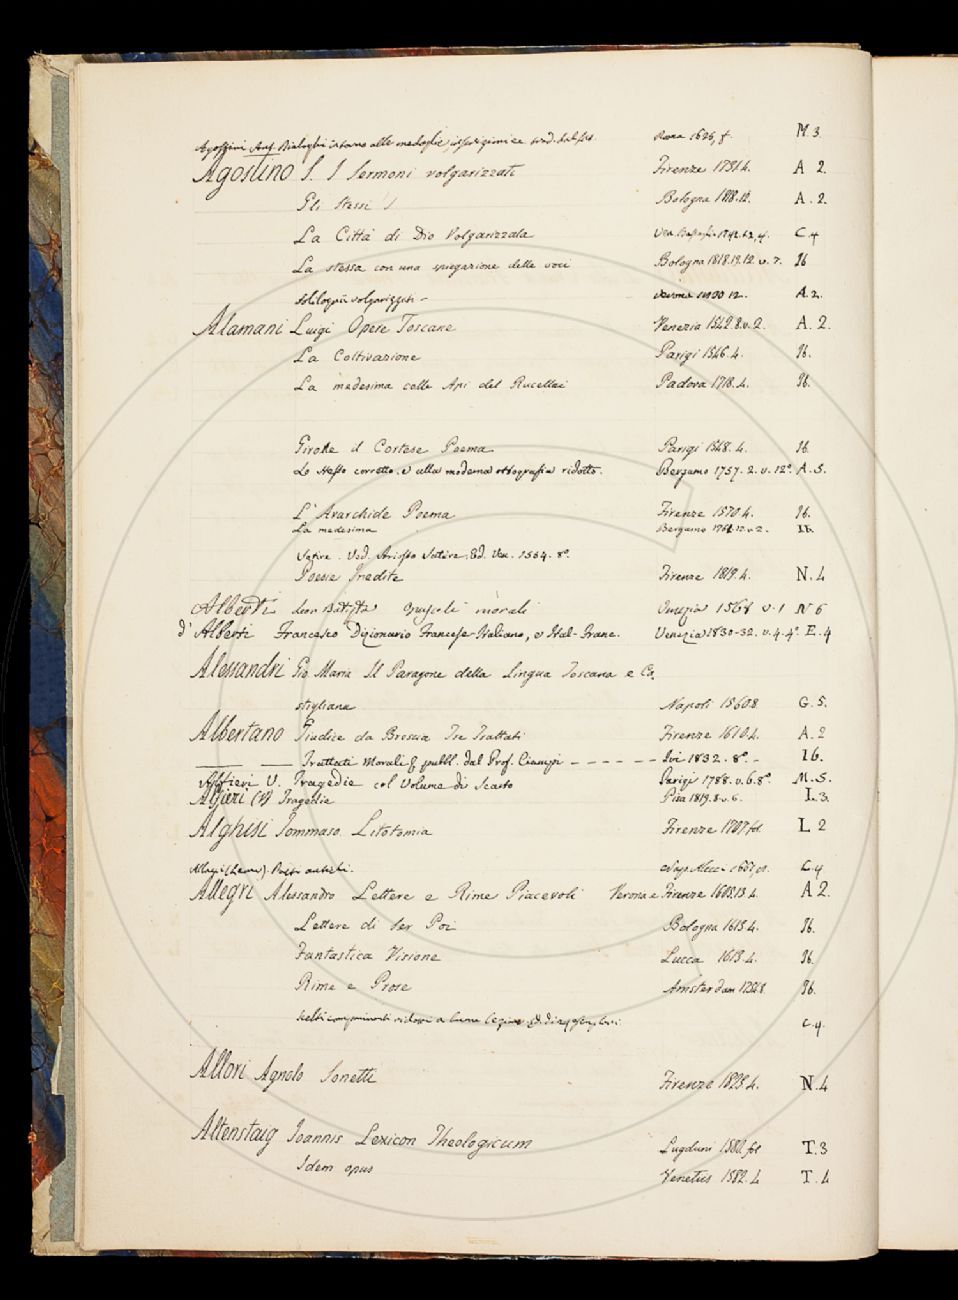 Agostini Ant. Dialoghi intorno alle medaglie, inscrizioni ec trad. dal Roma 1625, f. M. 3.
Agostino S. I Sermoni volgarizzati Firenze 1731.4. A 2.
Gli stessi Bologna 1818.12. A. 2.
La Città di Dio Volgarizzata Ven. 1742. C. 4
La stessa con una spiegazione delle voci Bologna 1818.19.12. v. 7. Ib
Soliloqui volgarizzati - Verona 1830 12. A. 2.
Alamani Luigi Opere Toscane Venezia 1542.8.v.2. A. 2.
La Coltivazione Parigi 1546.4. Ib.
La medesima colle Api del Rucellai Padova 1718.4. Ib.
Girone il Cortese Poema Parigi 1548.4. Ib.
Lo stesso corretto, e alla moderna ortografia ridotto. Bergamo 1757. 2. v. 12°. A. 5.
L'Avarchide Poema Firenze 1570 4. Ib.
La medesima Bergamo 1761.12.v 2. Ib.
Satire. Ved. Ariosto Satire. Ed. Ven. 1564. 8°.
Poesie Inedite Firenze 1819.4. N. 4
Alberti Leon Battista Opuscoli morali Venezia 1568 v. 1 N 6
d'Alberti Francesco Dizionario Francese-Italiano, e Ital-Franc. Venezia 1830-32. v. 4. 4° E. 4
Alessandri Gio. Maria Il Paragone della Lingua Toscana e Ca,
stigliana Napoli 1560 8 G. 5.
Albertano Giudice da Brescia Tre Trattati Firenze 1610 4. A. 2
— — Trattati Morali pubbl. dal Prof. Ciampi - - - - - - Ivi 1832. 8°. - Ib.
Alfieri V. Tragedie col Volume di Scarto Parigi 1788. v. 6. 8° M. 5.
Alfieri (V) Tragedie Pisa 1819.8.v.6. L. 3.
Alghisi Tommaso Litotomia Firenze 1707 fol L 2
Allacci (Leone) Poeti antichi. Nap. 1661 C. 4
Allegri Alessandro Lettere e Rime Piacevoli Verona e Firenze 1605.13.4. A 2.
Lettere di Ser Poi Bologna 1613.4. Ib.
Fantastica Visione Lucca 1613.4. Ib.
Rime e Prose Amsterdam 1754.8. Ib.
C. 4.
Allori Agnolo Sonetti Firenze 1823 4. N. 4
Altenstaig Joannis Lexicon Theologicum Lugduni 1580. fol T. 3
Idem opus Venetiis 1582. 4 T. 4